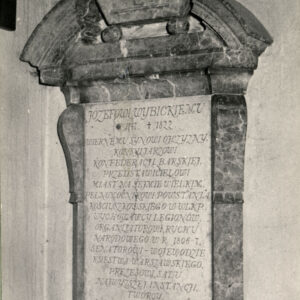 JÓZEFOWI WYBICKIEMU
* 1747 † 1822
WIERNEMU SYNOWI OJCZYZNY,
KONFEDERACJI BARSKIEJ,
PRZEDSTAWICIELOWI
MIAST NA SEJMIE WIELKIM,
PEŁNOMOCNIKOWI POWSTANIA
KOŚCIUSZKOWSKIEGO W WLKP.
WYCHOWAWCY LEGIONÓW,
ORGANIZATOROWI RUCHU
NARODOWEGO W R. 1806-7,
SENATOROWI - WOJEWODZIE
KSIĘSTWA WARSZAWSKIEGO,
PREZESOWI SĄDU
NAJWYŻSZEJ INSTANCJI,
TWÓRCY